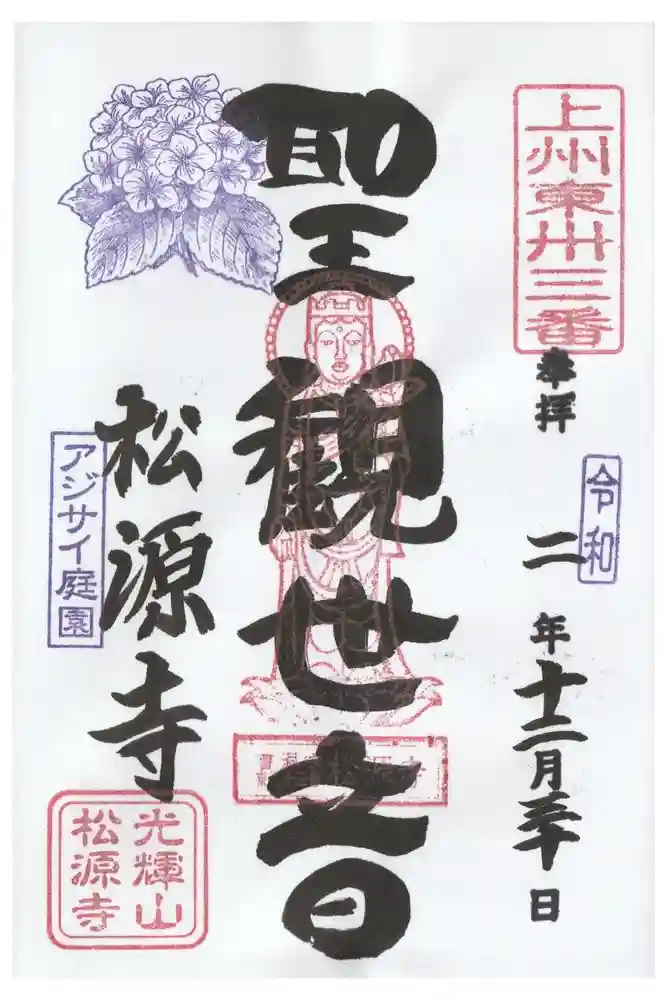 上州東卅三番
奉拝
令和
二年十二月三十日
聖観世音
松源寺
アジサイ庭園
光輝山
松源寺